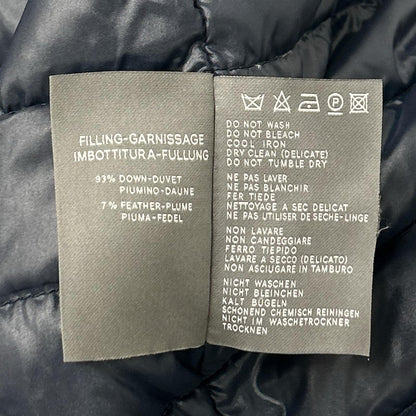 FILLING-GARNISSAGE
IMBOTTITURA-FÜLLUNG
93% DOWN-DUVET
PIUMINO-DAUNE
7% FEATHER-PLUME
PIUMA-FEDEL
DO NOT WASH
DO NOT BLEACH
COOL IRON
DRY CLEAN (DELICATE)
DO NOT TUMBLE DRY
NE PAS LAVER
NE PAS BLANCHIR
FER TIEDE
NETTOYAGE A SEC DELICAT
NE PAS UTILISER DE SECHE-LINGE
NON LAVARE
NON CANDEGGIARE
FERRO TIEPIDO
LAVARE A SECCO (DELICATO)
NON ASCIUGARE IN TAMBURO
NICHT WASCHEN
NICHT BLEINCHEN
KALT BÜGELN
SCHONEND CHEMISCH REININGEN
NICHT IM WASCHETROCKNER
TROCKNEN